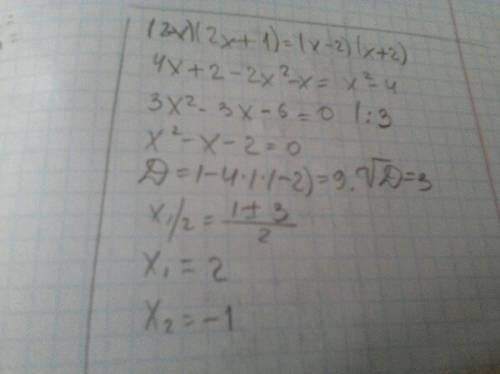 (2-x)(2x+1)=(x-2)(x+2)
4x+2-2x²-x = x²-4
3x²-3x-6=0 |:3
x²-x-2=0
D=1-4·1·(-2)=9. √D=3
x₁/₂ = (1±3)/2
x₁ = 2
x₂ = -1